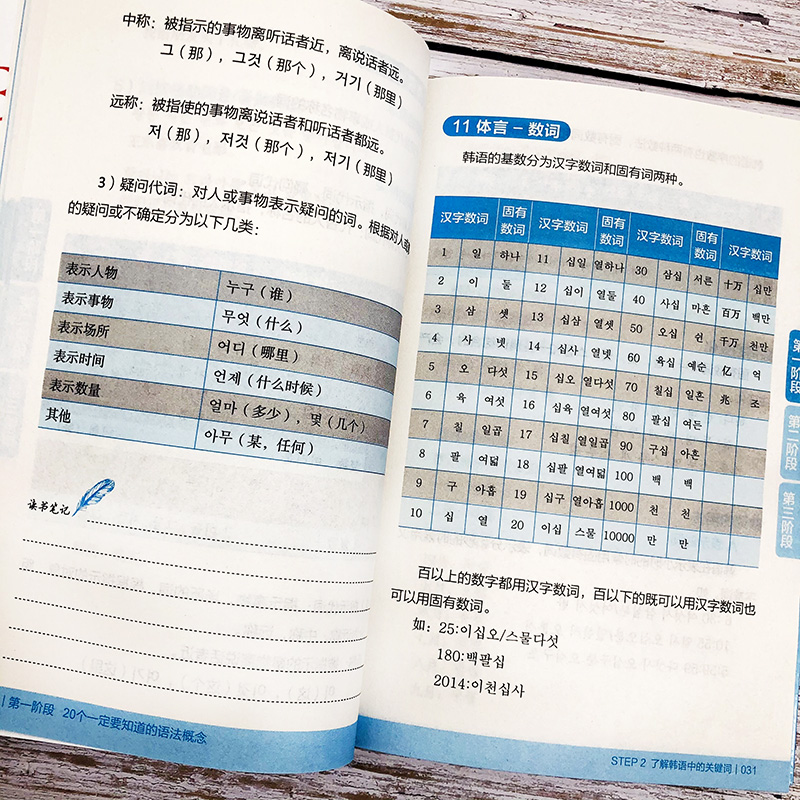 中称：被指示的事物离听话者近，离说话者远。
그（那），그것（那个），거기（那里）
远称：被指使的事物离说话者和听话者都远。
저（那），저것（那个），저기（那里）
3）疑问代词：对人或事物表示疑问的词。根据对人或
的疑问或不确定分为以下几类：
表示人物 누구（谁）
表示事物 무엇（什么）
表示场所 어디（哪里）
表示时间 언제（什么时候）
表示数量 얼마（多少），몇（几个）
其他 아무（某，任何）
读书笔记
第一阶段 20个一定要知道的语法概念
11 体言－数词
韩语的基数分为汉字数词和固有词两种。
汉字数词 固有数词 汉字数词 固有数词 汉字数词 固有数词 汉字数词
1 일 하나 11 십일 열하나 30 삼십 서른 十万 십만
2 이 둘 12 십이 열둘 40 사십 마흔 百万 백만
3 삼 셋 13 십삼 열셋 50 오십 쉰 千万 천만
4 사 넷 14 십사 열넷 60 육십 예순 亿 억
5 오 다섯 15 십오 열다섯 70 칠십 일흔 兆 조
6 육 여섯 16 십육 열여섯 80 팔십 여든
7 칠 일곱 17 십칠 열일곱 90 구십 아흔
8 팔 여덟 18 십팔 열여덟 100 백 백
9 구 아홉 19 십구 열아홉 1000 천 천
10 십 열 20 이십 스물 10000 만 만
百以上的数字都用汉字数词，百以下的既可以用汉字数词也
可以用固有数词。
如：25:이십오/스물다섯
180:백팔십
2014:이천십사
第一阶段
第二阶段
第三阶段
STEP 2 了解韩语中的关键词 | 031